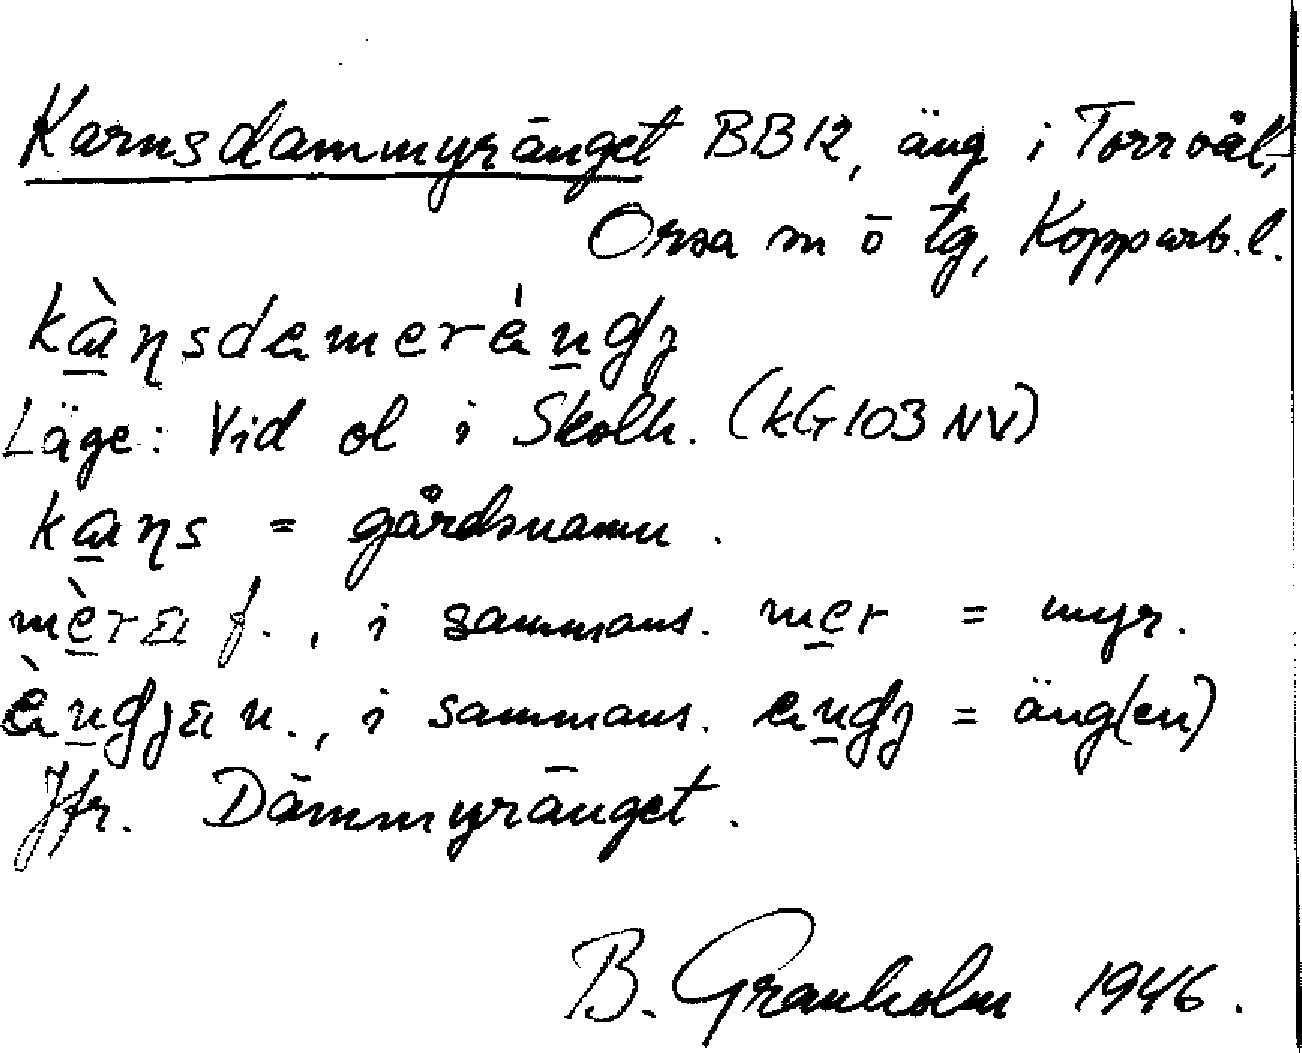 Karnsdammyränget BB12, äng i Torrvål,
Orsa sn ö tg, Kopparb.l.
kàɳsdemeràŋgj
Läge: Vid ol i Skolh. (kG103NV)
kaɳs = gårdsnamn.
mèra f., i sammans. mer = myr.
èŋgja n., i sammans. eŋgj = äng(en)
Jfr. Dämmyränget.
B. Granholm 1946.